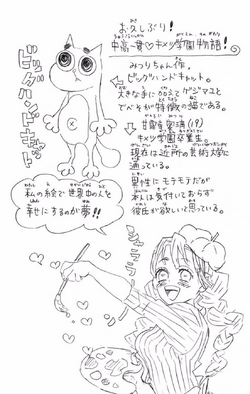 お久しぶり!
中高一貫♡キメツ学園物語!
みつりちゃん作。
ビッグハンドキャット。
大きな手に
デベそが特徴の猫である。
甘露寺蜜璃(19)
キメツ学園卒業生。
現在は近所の芸術大学に
通っている。
男性にモテモテだが
本人は気付いておらず
彼氏が欲しいて思っている。
ビッグハンドキャット
私の絵で世界中の人を
幸せにするのが夢!!
シャララ